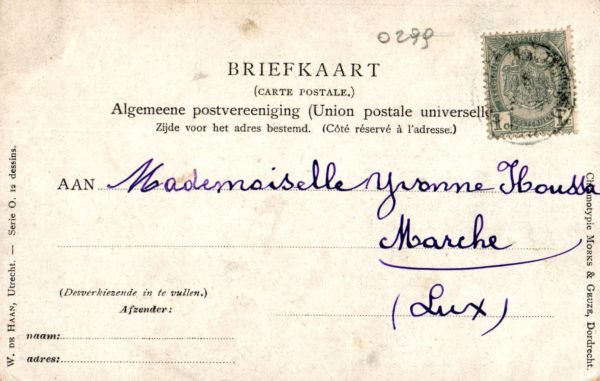 0299
BRIEFKAART
(CARTE POSTALE.)
Algemeene postvereeniging (Union postale universelle
Zijde voor het adres bestemd. (Côté réservé à l'adresse.)
AAN Mademoiselle Yvonne Houssa
Marche
(Lux)
(Desverkiezende in te vullen.)
Afzender:
naam:
adres:
W. DE HAAN, Utrecht. — Serie O. 12 dessins.
Chromotypie MORKS & GEUZE, Dordrecht.
1 1